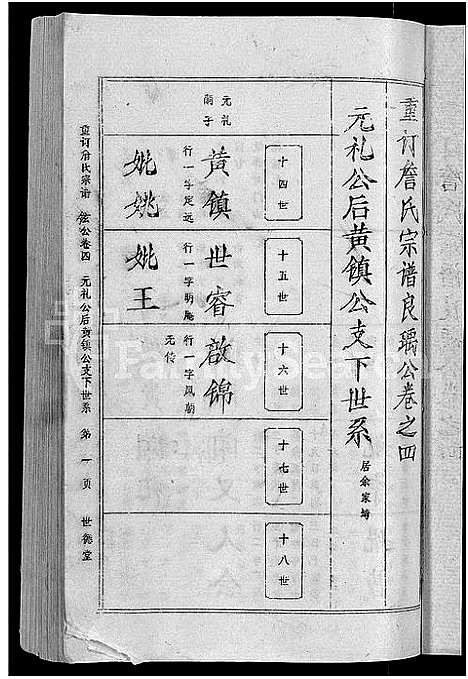 重订詹氏宗谱良瑀公卷之四
元礼公后黄镇公支下世系
居余家塆
十四世
十五世
十六世
十七世
十八世
元礼
丽子
黄镇
行一字定远
妣姚
世睿
行一字明庵
妣王
啟锦
行一字凤朝
无传
重订詹氏宗谱
公卷四
元礼公后黄镇公支下世系
第一页
世德堂